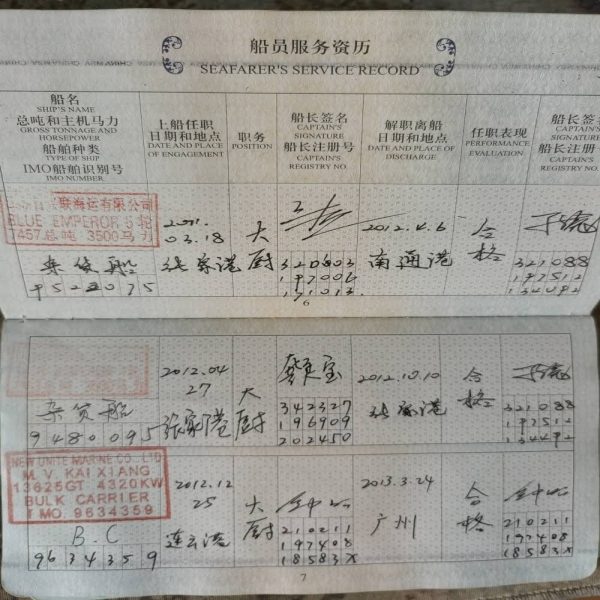 船员服务资历
SEAFARER'S SERVICE RECORD
船名
SHIP'S NAME
总吨和主机马力
GROSS TONNAGE AND HORSEPOWER
船舶种类
TYPE OF SHIP
IMO船舶识别号
IMO NUMBER
上船任职
日期和地点
DATE AND PLACE OF ENGAGEMENT
职务
POSITION
船长签名
CAPTAIN'S SIGNATURE
船长注册号
CAPTAIN'S REGISTRY NO.
解职离船
日期和地点
DATE AND PLACE OF DISCHARGE
任职表现
PERFORMANCE EVALUATION
船长签名
CAPTAIN'S SIGNATURE
船长注册
CAPTAIN'S REGISTRY NO.
联海运有限公司
BLUE EMPEROR 5 轮
7457总吨 3500马力
杂货船
03.18
张家港
大厨
2012.4.6
南通港
合格
321088
197512
6
杂货船
9480095
2012.04
27
张家港
大厨
342327
196909
202450
2012.10.10
张家港
合格
321088
197512
NEW UNITE MARINE CO., LTD
M. V. KAI XIANG
13625GT 4320KW
BULK CARRIER
IMO. 9634359
B.C
9634359
2012.12
25
连云港
大厨
210211
197408
18583X
2013.3.24
广州
合格
210211
197408
18583X
7